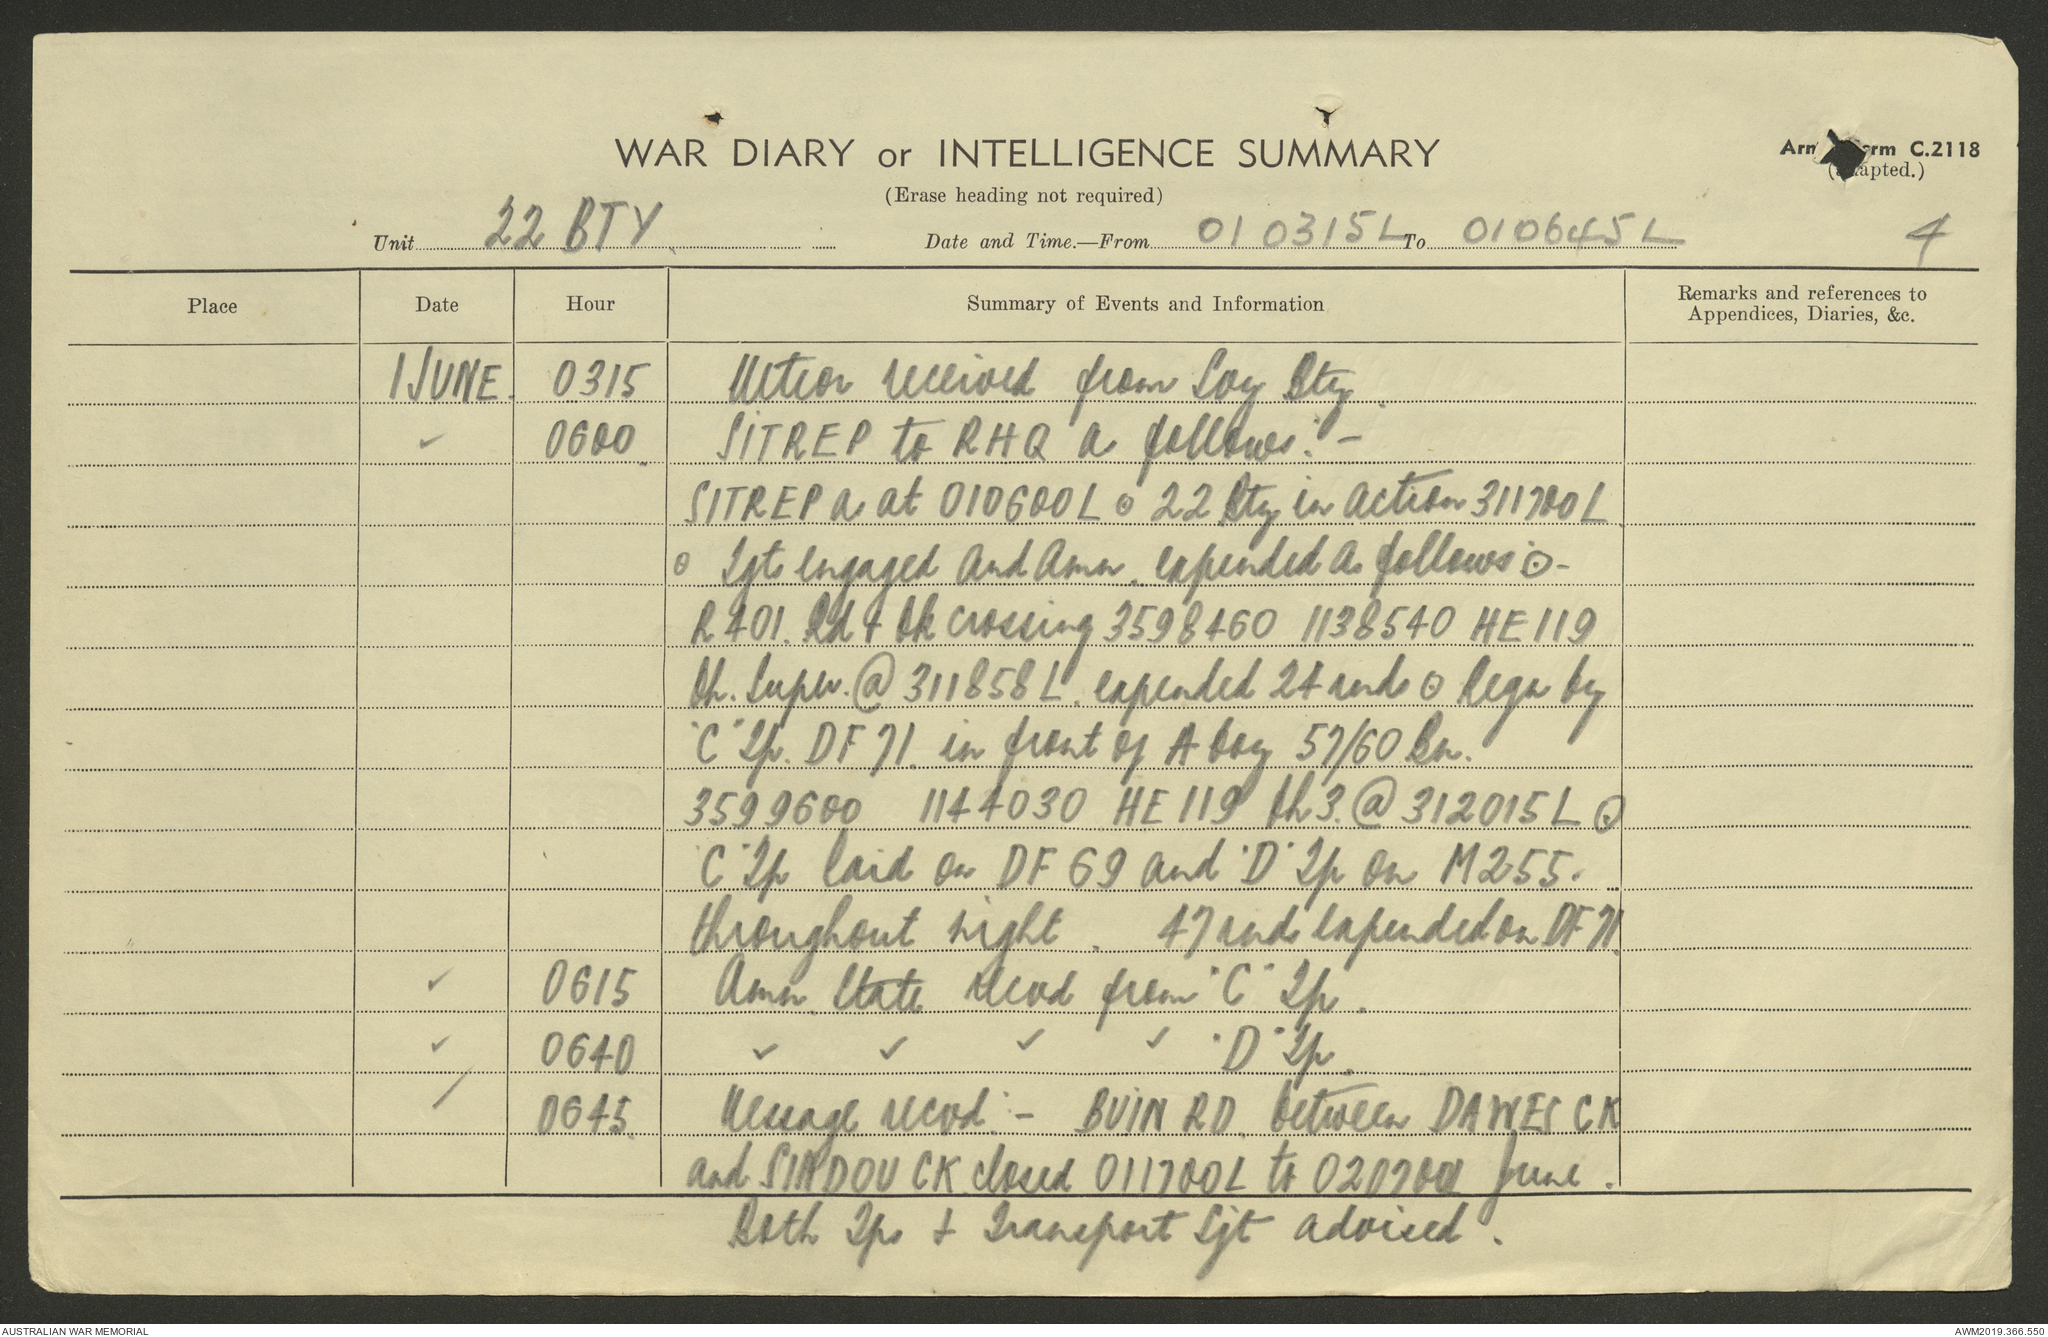 WAR DIARY or INTELLIGENCE SUMMARY
(Erase heading not required)
Army Form C.2118
(adapted.)
Unit 22 BTY Date and Time.—From 010315L To 010645L
4
Place Date Hour Summary of Events and Information Remarks and references to
Appendices, Diaries, &c.
1 JUNE. 0315 Meteor received from Svy Bty.
✓ 0600 SITREP to RHQ as follows:-
SITREP as at 010600L ⊙ 22 Bty in action 311700L
⊙ Tgts engaged and Amn. expended as follows ⊙-
R401. Rd + Ck crossing 3598460 1138540 HE119
Ch. Super. @ 311858L. expended 24 rnds ⊙ Regn by
"C" Tp. DF 71. in front of A Coy 57/60 Bn.
3599600 1144030 HE119 Ch 3. @ 312015L ⊙
"C" Tp laid on DF 69 and "D" Tp on M255.
throughout night. 47 rnds expended on DF 71.
✓ 0615 Amn. State recvd from "C" Tp.
✓ 0640 ✓ ✓ ✓ ✓ "D" Tp.
✓ 0645. Message recvd:- BUIN RD. between DAWES CK
and SINDOU CK closed 011700L to 020700L June.
Both Tps + Transport Sjt advised.
AUSTRALIAN WAR MEMORIAL
AWM2019.366.550